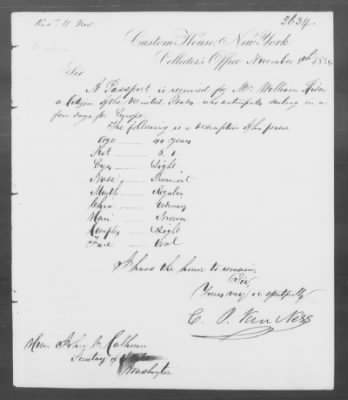 Rec'd 11 Nov
2634.
Custom House, New York
Collector's Office November 8th 184
Sir
A Passport is required for Mr William Rider
a Citizen of the United States, who anticipates sailing in a
few days for Europe.
The following is a description of his person
Age 40 years
Hat 5.
Eyes Light
Nose, Prominent
Mouth Regular
Chin Ordinary
Hair Brown
Complex Light
Face Oval
I have the honor to remain,
Sir,
Yours very respectfully
C. P. Van Ness
Hon. John C Calhoun
Secretary of
Washington